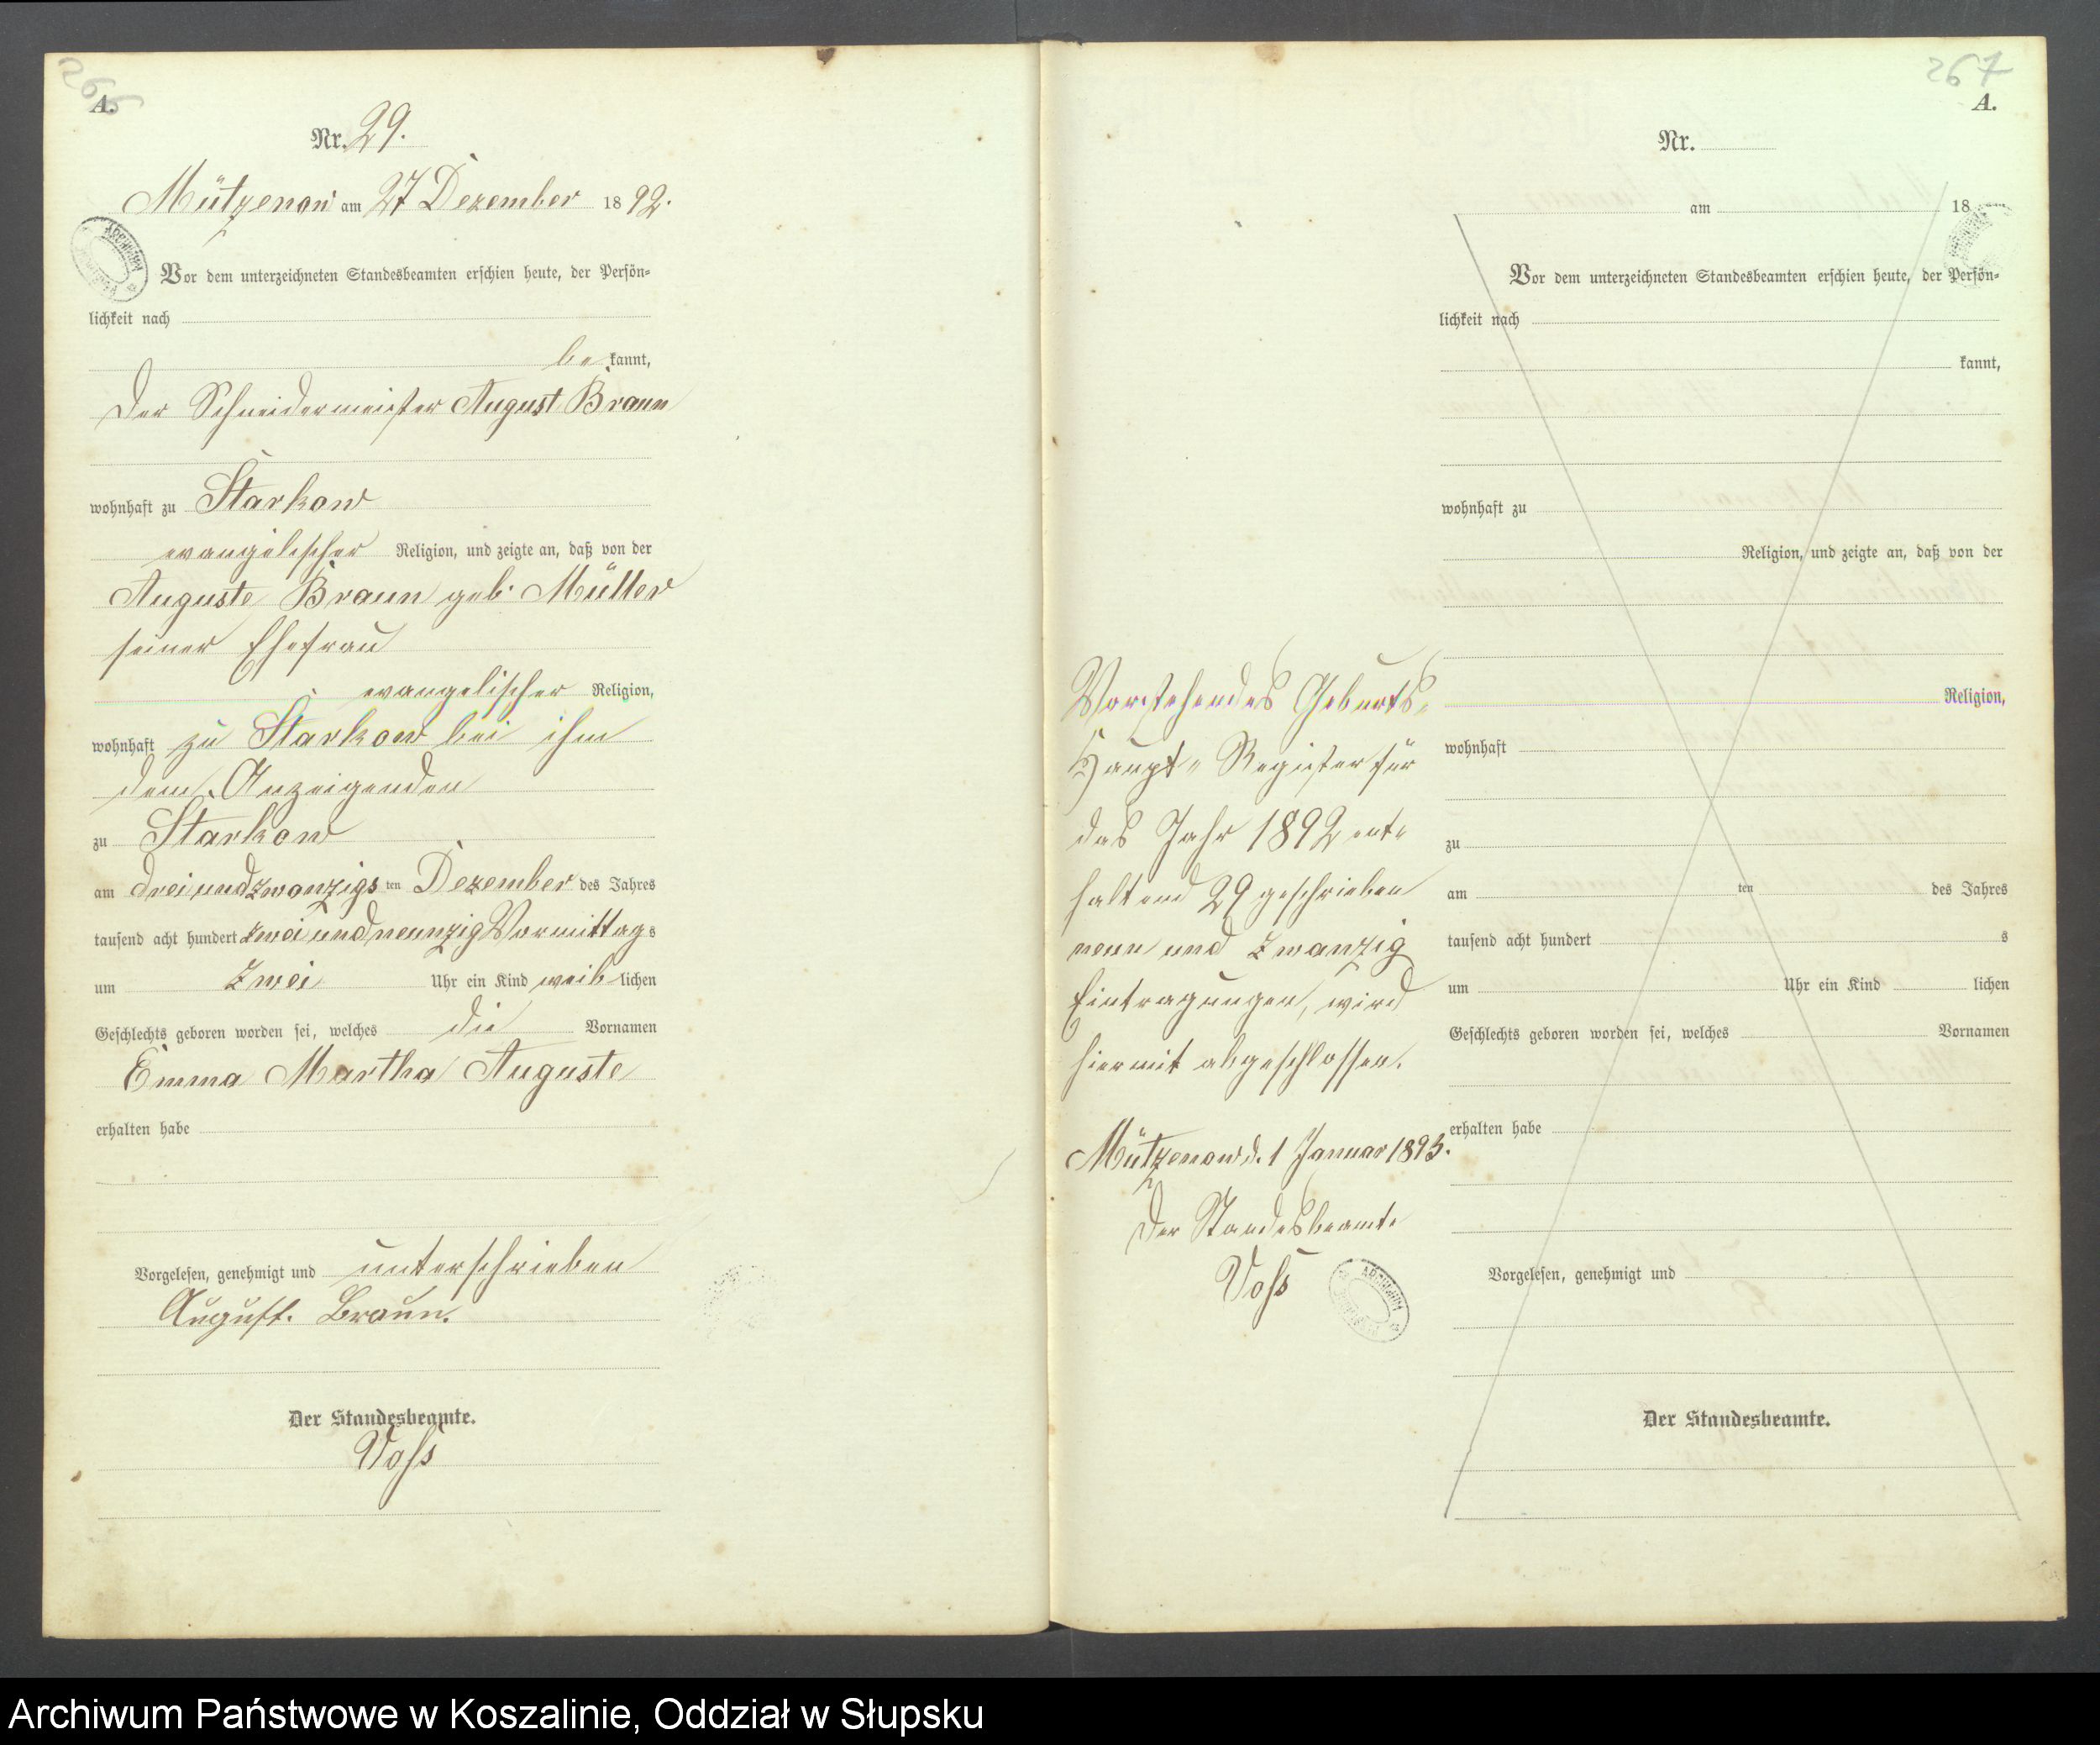 266
A.
Nr. 29.
Mützenow am 27 Dezember 1892.
Vor dem unterzeichneten Standesbeamten erschien heute, der Persön-
lichkeit nach
bekannt,
Der Schneidermeister August Braun
wohnhaft zu Starkow
evangelischer Religion, und zeigte an, daß von der
Auguste Braun geb. Müller
seiner Ehefrau
evangelischer Religion,
wohnhaft zu Starkow bei ihm
dem Anzeigenden
zu Starkow
am dreiundzwanzigsten Dezember des Jahres
tausend acht hundert zwei und neunzig Vormittags
um zwei Uhr ein Kind weiblichen
Geschlechts geboren worden sei, welches die Vornamen
Emma Martha Auguste
erhalten habe
Vorgelesen, genehmigt und unterschrieben
August. Braun.
Der Standesbeamte.
Voß
267
A.
Nr.
am 18
Vor dem unterzeichneten Standesbeamten erschien heute, der Persön-
lichkeit nach
kannt,
wohnhaft zu
Religion, und zeigte an, daß von der
Religion,
wohnhaft
zu
am ten des Jahres
tausend acht hundert s
um Uhr ein Kind lichen
Geschlechts geboren worden sei, welches Vornamen
erhalten habe
Vorgelesen, genehmigt und
Der Standesbeamte.
Vorstehendes Geburts-
Haupt-Register für
das Jahr 1892 ent-
haltend 29 geschrieben
neun und zwanzig
Eintragungen, wird
hiermit abgeschlossen.
Mützenow d. 1 Januar 1893.
Der Standesbeamte
Voß
Archiwum Państwowe w Koszalinie, Oddział w Słupsku